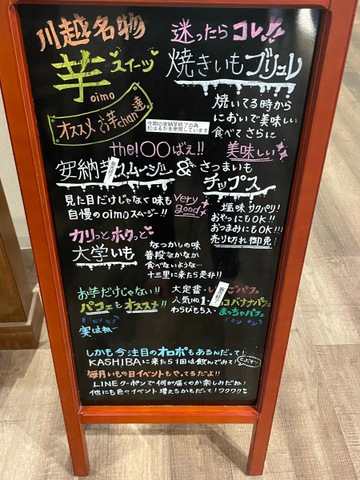 川越名物
芋スイーツ
oimo
オススメ お芋chan達
迷ったらコレ!!
焼きいもブリュレ
焼いてる時から
においで美味しい
食べてさらに
美味しい
今期の安納芋終了の為
紅はるかを使用しています
the100ばぇ!!
安納芋スムージー & さつまいも
チップス
見た目だけじゃなくて味も
自慢のoimoスムージー!!
very good
塩味サクパリ!
おやつにもOK!!
おつまみにもOK!!
売り切れ御免
カリっとホクっと
大学いも
なつかしの味
普段なかなか
食べないような…
十三里に来たら是非!!
お芋だけじゃない!!
パフェもオススメ!!
実はね…
大定番
人気No1
わらびもち入
パフェ
コバナナパフェ
まっちゃパフェ
しかも今注目のオロポもあるんだって!
KASHIBAに来たら1回は飲んでみて!
毎月いもの日イベントもやってるだよ!!
LINEクーポンで何が届くのか楽しみだね!
他にも色々イベント増えるかもだって!ワクワク